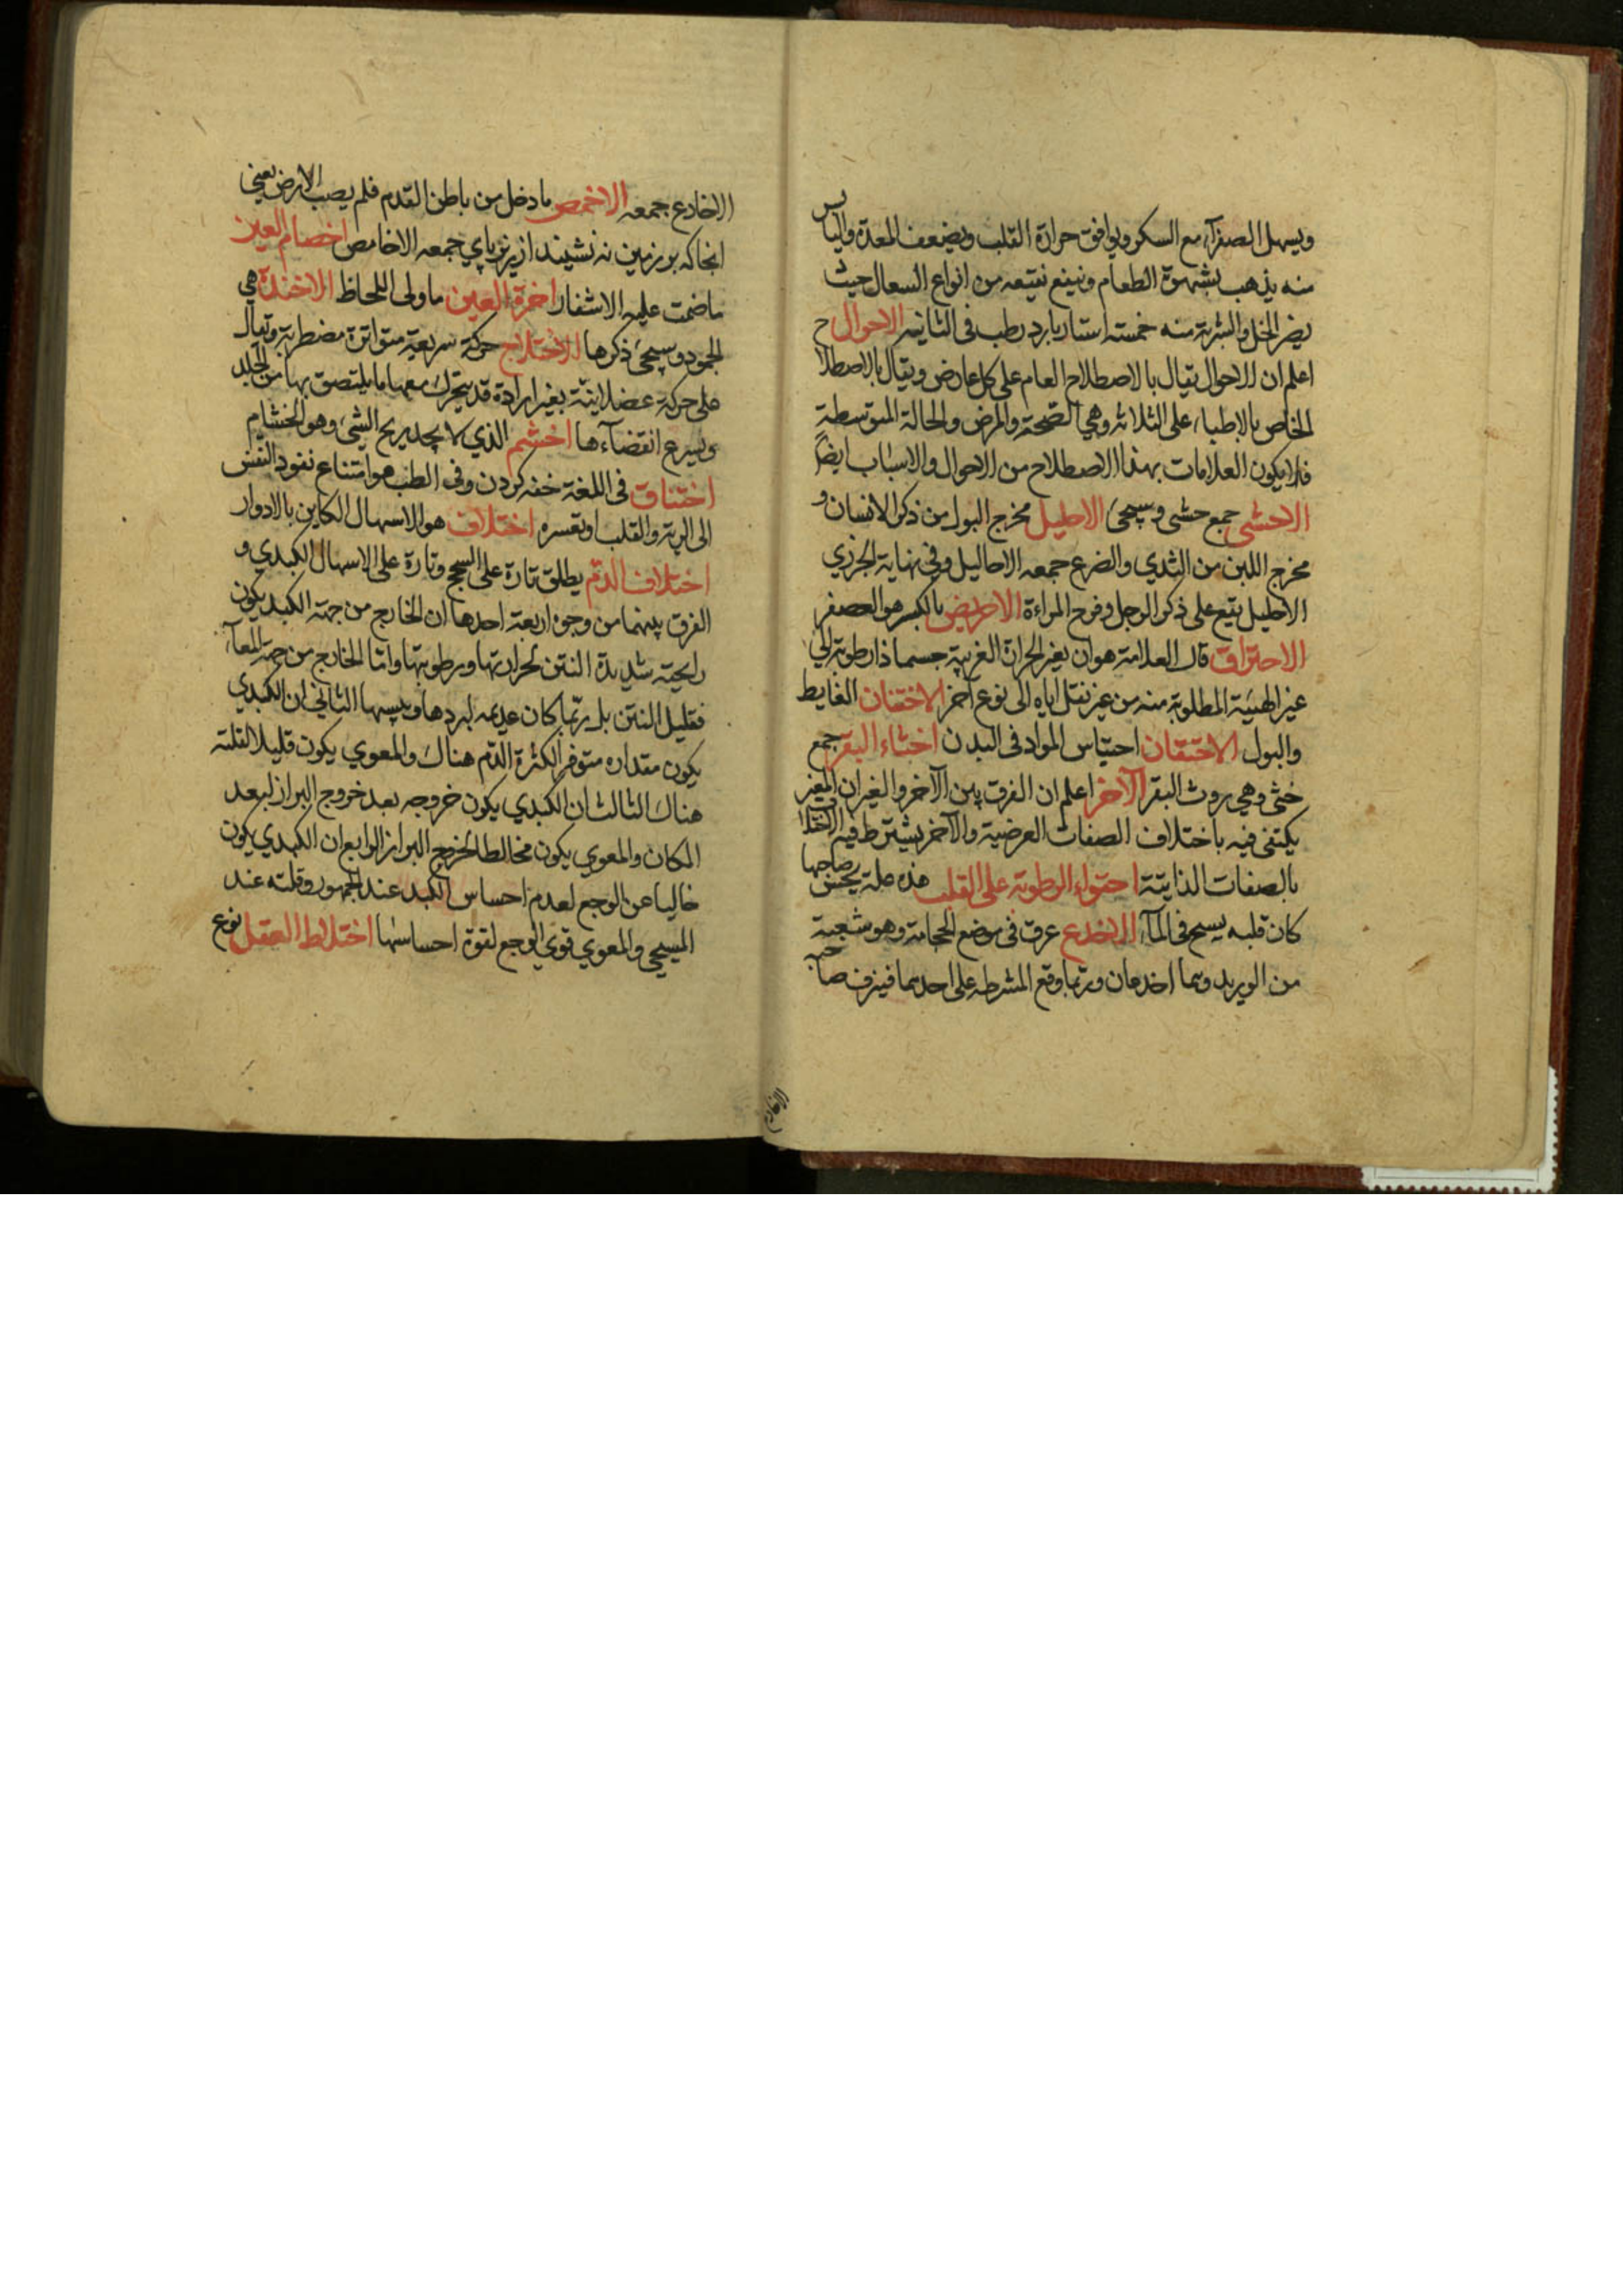 ويسهل الصفرآء مع السكر ويوافق حرارة القلب ويضعف المعدة واليابس
منه يذهب بشهوة الطعام وينفع نقيعه من انواع السعال حيث
يضر الخل والشربة منه خمسة استار بارد رطب في الثانية الاحوال ح
اعلم ان الاحوال يقال بالاصطلاح العام على كل عارض ويقال بالاصطلا
الخاص بالاطباء على الثلاثه وهي الصحة والمرض والحالة المتوسطة
فلا يكون العلامات بهذا الاصطلاح من الاحوال والاسباب ايضاً
الاحشى جمع حشى وسيجئ الاحليل مخرج البول من ذكر الانسان و
مخرج اللبن من الثدي والضرع جمعه الاحاليل وفي نهاية الجزري
الاحليل يقع على ذكر الرجل وفرج المراءة الاحريض بالكسر هو العصفر
الاحتراق قال العلامة هو ان يغير الحرارة الغريبة جسما ذا رطوبة الى
غير الهيئة المطلوبة منه من غير نقل اياه الى نوع آخر الاحتقان الغايط
والبول الاحتقان احتباس المواد في البدن اخثاء البقر جمع
خثى وهي روث البقر الآخر اعلم ان الفرق بين الآخر والغير ان الغير
يكتفى فيه باختلاف الصفات العرضية والآخر يشترط فيه الاختلا
بالصفات الذاتية احتواء الرطوبة على القلب هذه علة يحس صاحبها
كان قلبه يسبح في المآء الاخدع عرق في موضع الحجامة وهو شعبة
من الوريد وهما اخدعان وربما وقع المشرطه على احدهما فينزف صاحبه
الاخادع جمعه الاخمص ما دخل من باطن القدم فلم يصب الارض يعني
انجا كه بر زمين نه نشيند از زير پاي جمعه الاخامص اخصام العين
ما ضمت عليه الاشفار اخرة العين ما ولى اللحاظ الاخذة هي
الجمود وسيجئ ذكرها الاختلاج حركة سريعة متواترة مضطربة ويقال
على حركة عضلانية بغير ارادة قد يتحرك معها ما يلتصق بها من الجلد
ويسرع انقضآءها اخشم الذي لا يجد ريح الشئ وهو الخشام
اختناق في اللغة خفه كردن وفي الطب هو امتناع نفوذ النفس
الى الرية والقلب او تعسره اختلاف هو الاسهال الكاين بالادوار
اختلاف الدم يطلق تارة على السحج وتارة على الاسهال الكبدي و
الفرق بينهما من وجوه اربعة احدها ان الخارج من جهة الكبد يكون
رايحته شديدة النتن لحرارتها ورطوبتها واما الخارج من جهة المعآء
فقليل النتن بل ربما كان عديمه لبردها ويبسها الثاني ان الكبدي
يكون مقداره متوفر الكثرة الدم هناك والمعوي يكون قليلا لقلته
هناك الثالث ان الكبدي يكون خروجه بعد خروج البراز لبعد
المكان والمعوي يكون مخالطا لخروج البراز الرابع ان الكبدي يكون
خاليا عن الوجع لعدم احساس الكبد عند الجمهور وقلته عند
المسيحي والمعوي قوي الوجع لقوة احساسها اختلاط العقل نوع